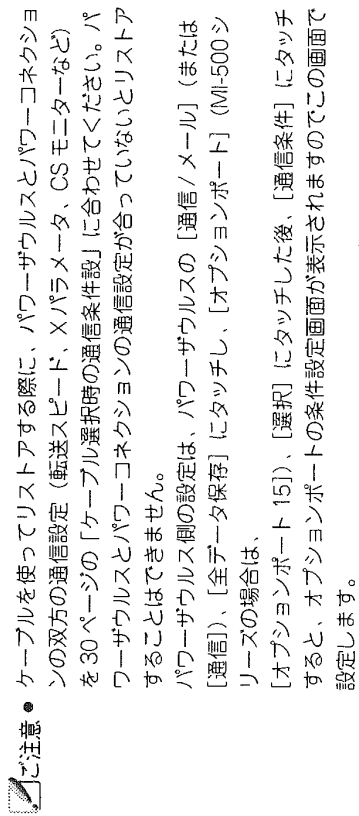 ご注意 ● ケーブルを使ってリストアする際に、パワーザウルスとパワーコネクショ
ンの双方の通信設定（転送スピード、Xパラメータ、CSモニターなど）
を30ページの「ケーブル選択時の通信条件設」に合わせてください。パ
ワーザウルスとパワーコネクションの通信設定が合っていないとリストア
することはできません。
パワーザウルス側の設定は、パワーザウルスの［通信/メール］（または
［通信］）、［全データ保存］にタッチし、［オプションポート］（MI-500シ
リーズの場合は、
［オプションポート15］）、［選択］にタッチした後、［通信条件］にタッチ
すると、オプションポートの条件設定画面が表示されますのでこの画面で
設定します。